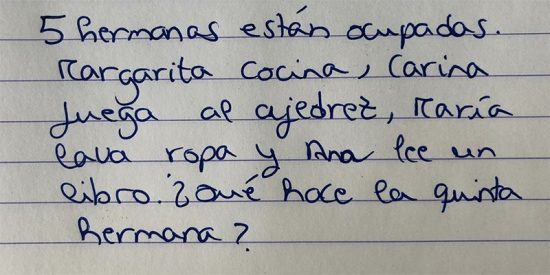 5 hermanas están ocupadas.
Margarita cocina, Carina
juega al ajedrez, María
lava ropa y Ana lee un
libro. ¿Qué hace la quinta
hermana?